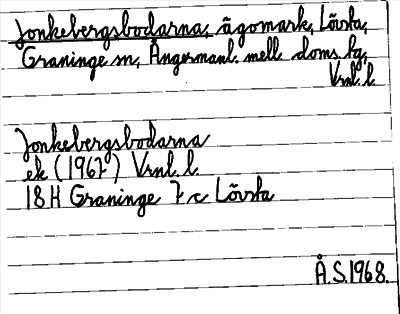 Jonkebergsbodarna, ägomark, Lövsta,
Graninge sn, Ångermanl. mell. doms. fg,
Vrnl. l.
Jonkebergsbodarna
ek (1967) Vrnl. l.
18H Graninge 7 c Lövsta
Å.S.1968.